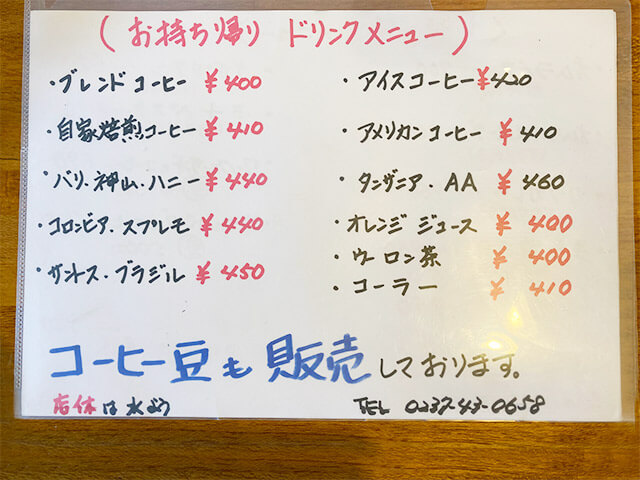 (お持ち帰り ドリンクメニュー)
・ブレンドコーヒー ¥400
・自家焙煎コーヒー ¥410
・バリ.神山.ハニー ¥440
・コロンビア.スプレモ ¥440
・サントス.ブラジル ¥450
・アイスコーヒー ¥420
・アメリカンコーヒー ¥410
・タンザニア.AA ¥460
・オレンジジュース ¥400
・ウーロン茶 ¥400
・コーラー ¥410
コーヒー豆も販売しております。
店休は水よう TEL 0237-43-0658